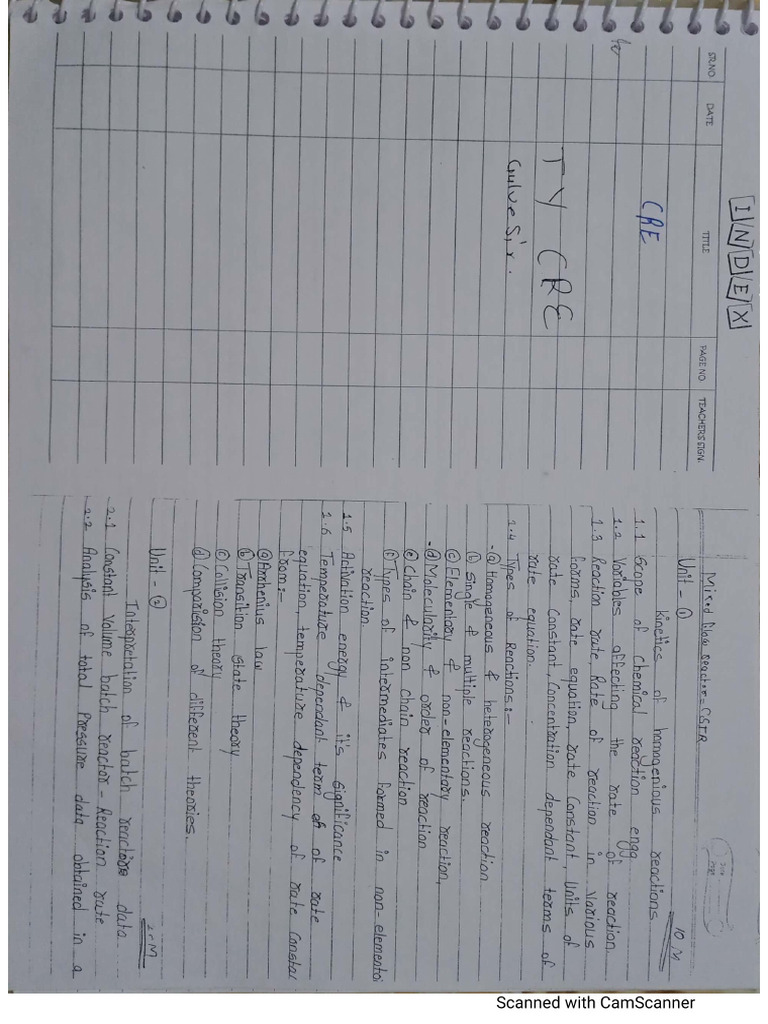 INDEX
SR.NO. DATE TITLE PAGE NO. TEACHER'S SIGN.
CRE
TY CRE
Gulve Sir.
Mixed flow reactor = CSTR
Unit - ①
10 M
kinetics of homogenious reactions
1.1 Scope of Chemical reaction engg
1.2 Variables affecting the rate of reaction.
1.3 Reaction rate, Rate of reaction in various
forms, rate equation, rate Constant, Units of
rate Constant, Concentration dependant terms of
rate equation.
1.4 Types of Reactions:-
- ⓐ Homogeneous & heterogeneous reaction
ⓑ Single & multiple reactions.
ⓒ Elementary & non-elementary reaction,
- ⓓ Molecularity & order of reaction
ⓔ Chain & non chain reaction
ⓕ Types of intermediates formed in non-elementa
reaction.
1.5 Activation energy & it's significance
1.6 Temperature dependant term of rate
equation, temperature dependency of rate Constan
from:-
ⓐ Arrhenius law
ⓑ Transition state theory
ⓒ Collision theory
ⓓ Comparision of different theories.
Unit - ②
Interpretation of batch reactors data
2.1 Constant Volume batch reactor - Reaction rate
2.2 Analysis of total Pressure data obtained in a
Scanned with CamScanner